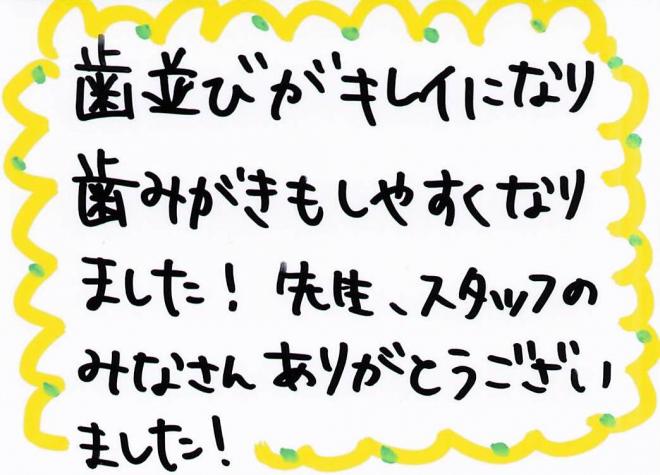 歯並びがキレイになり
歯みがきもしやすくなり
ました！先生、スタッフの
みなさんありがとうござい
ました！